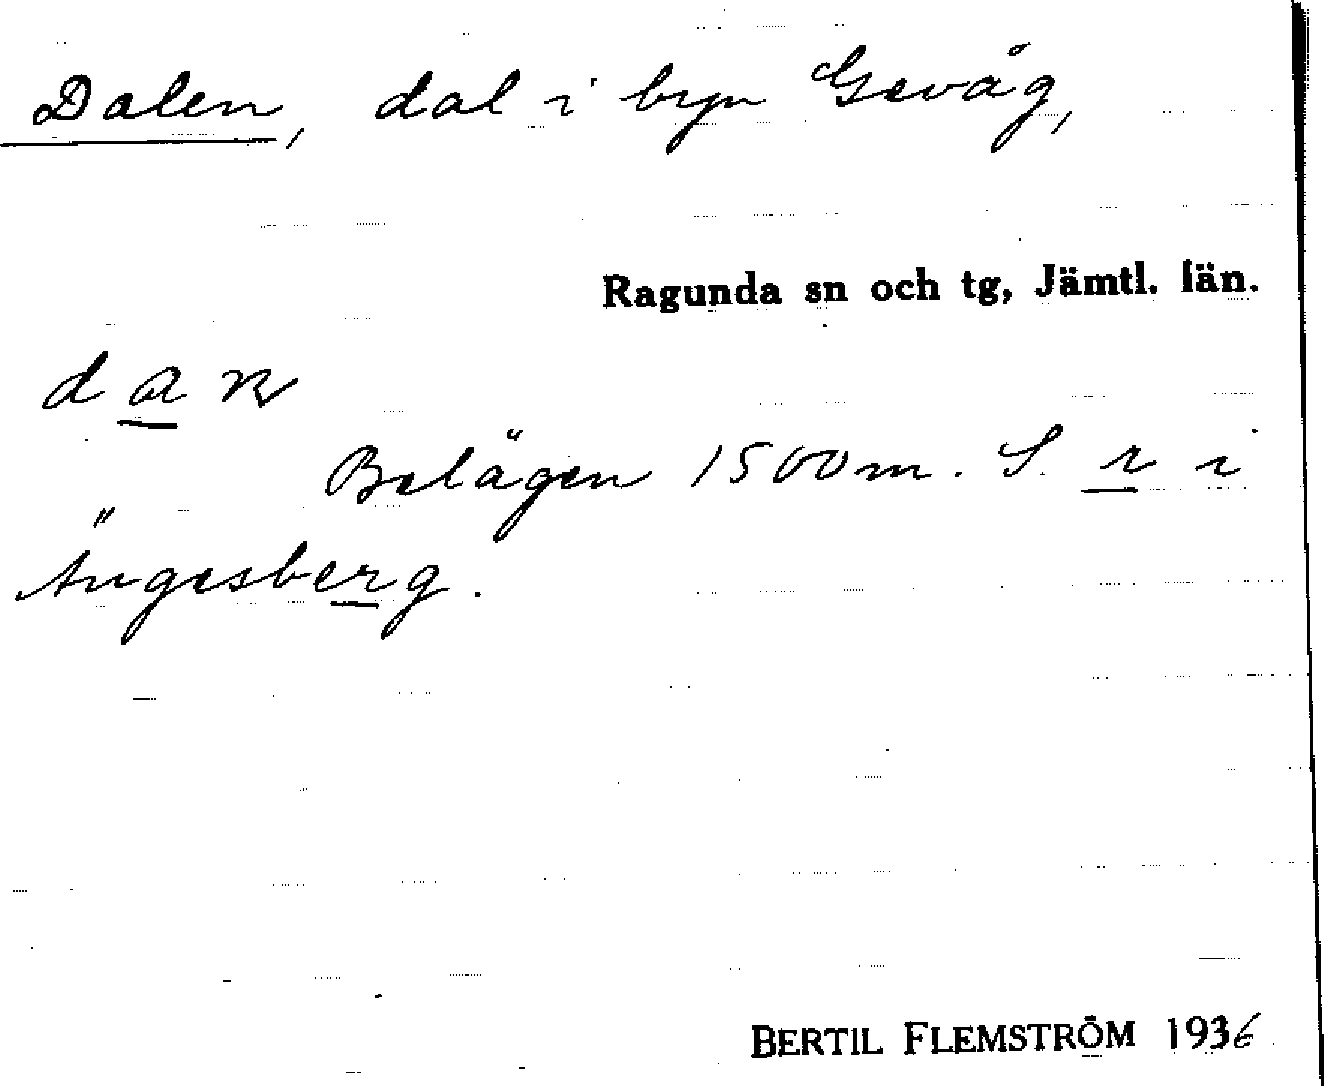 Dalen, dal i byn Gevåg,
Ragunda sn och tg, Jämtl. län.
dan
Belägen 1500 m. S. r i
Ängesberg.
BERTIL FLEMSTRÖM 1936